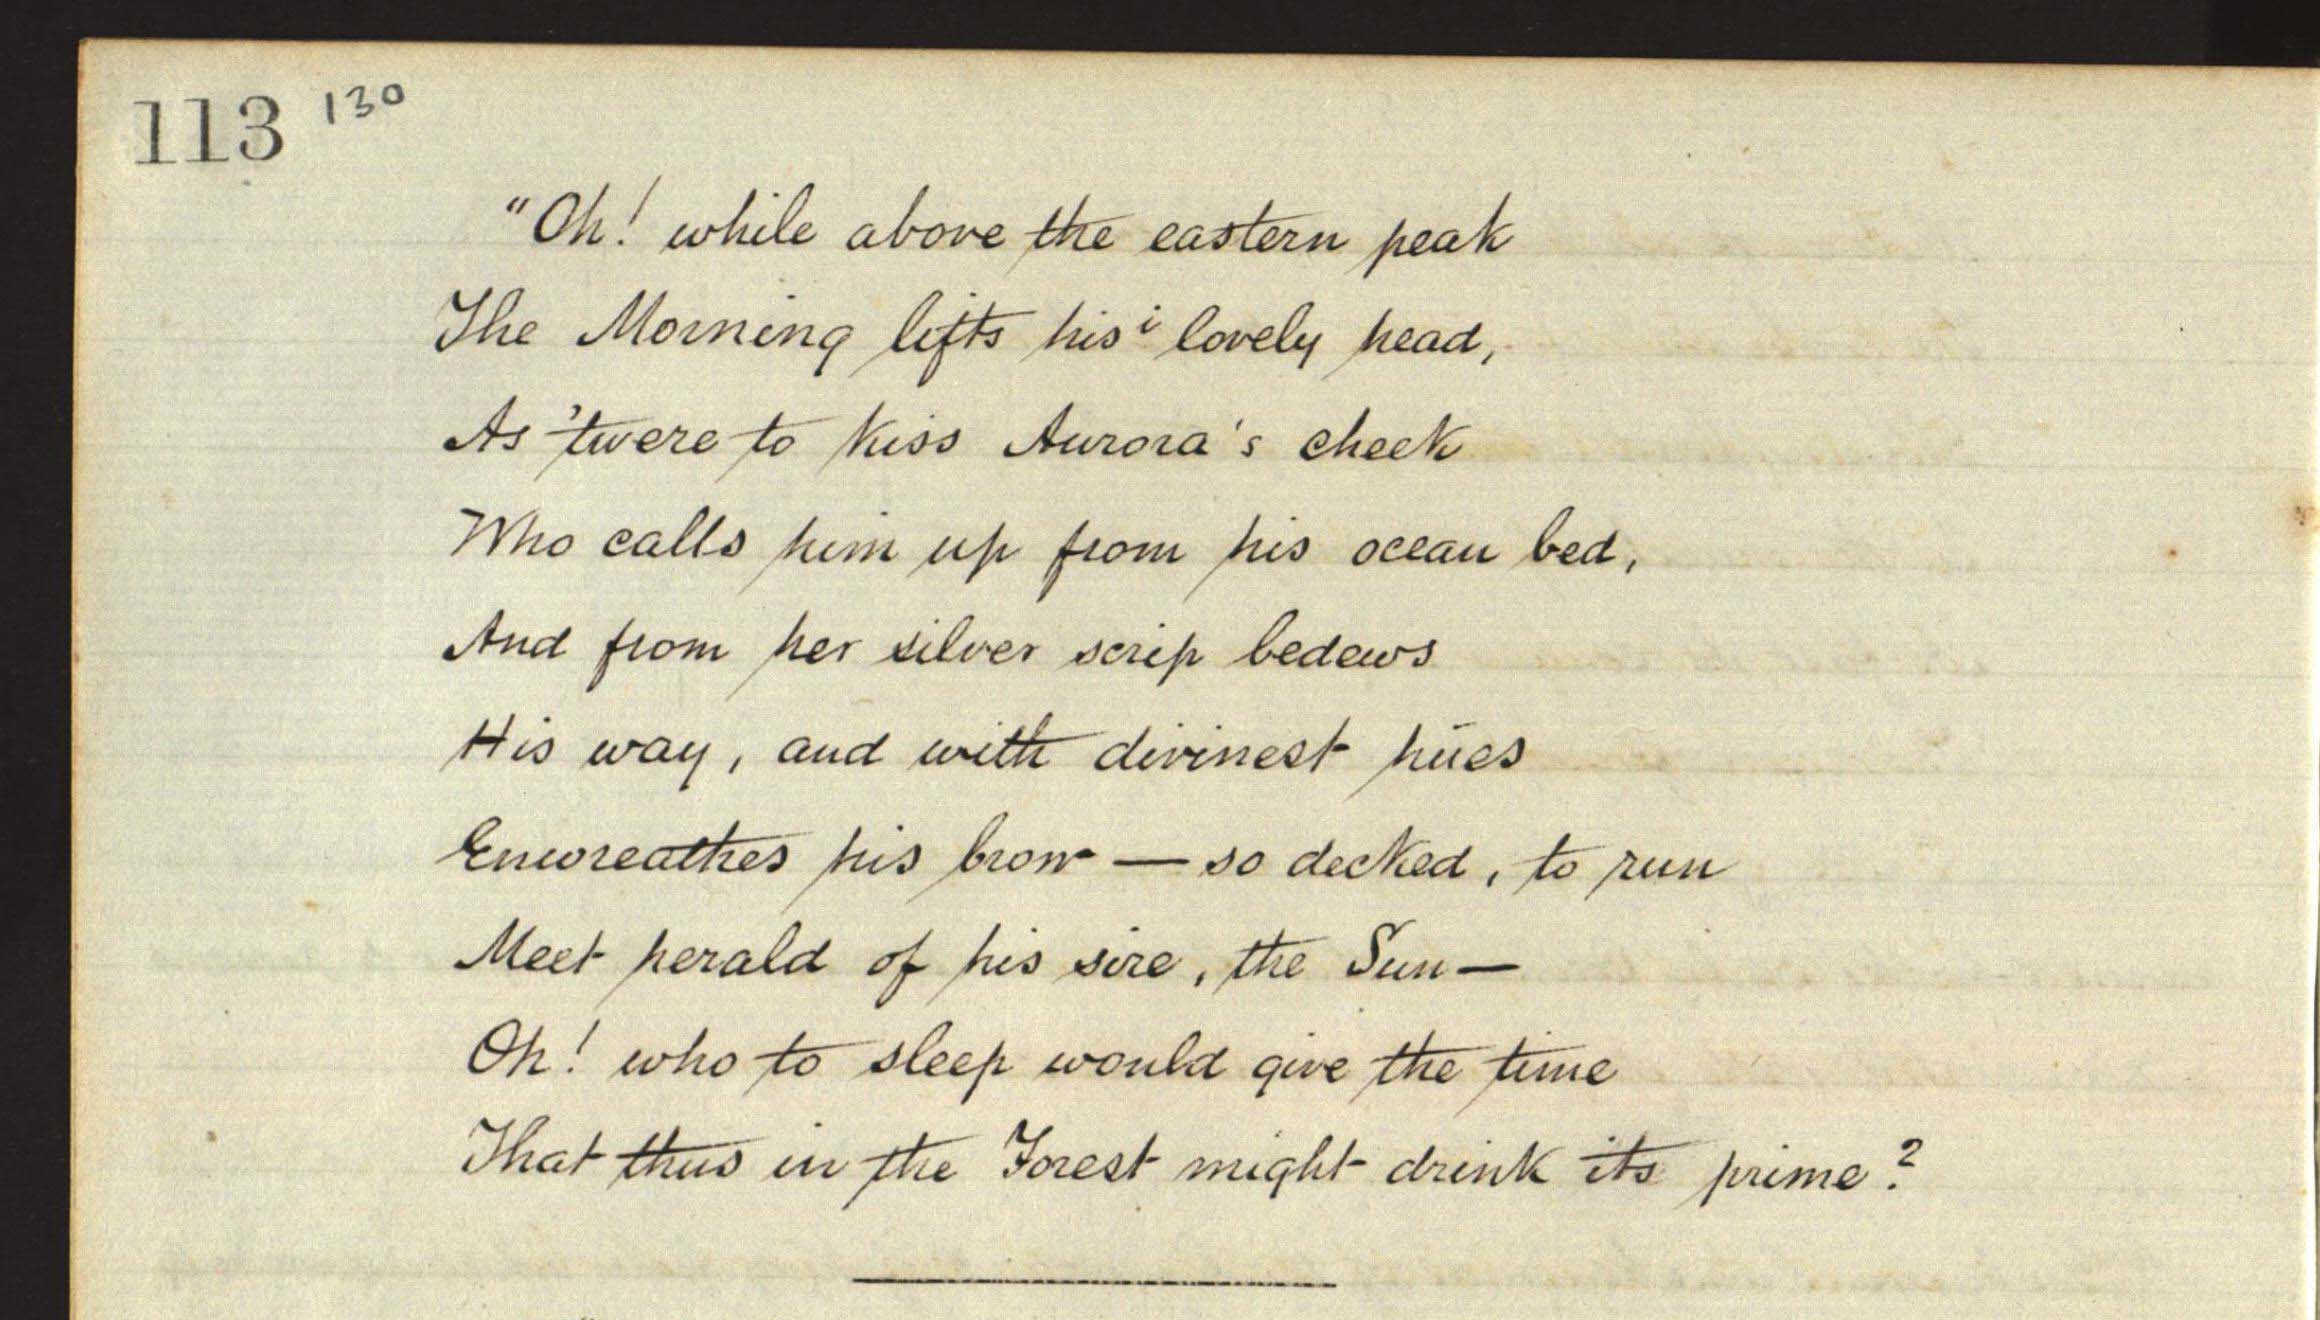 113 130
"Oh! while above the eastern peak
The Morning lifts his lovely head,
As 'twere to kiss Aurora's cheek
Who calls him up from his ocean bed,
And from her silver scrip bedews
His way, and with divinest hues
Enwreathes his brow — so decked, to run
Meet herald of his sire, the Sun —
Oh! who to sleep would give the time
That thus in the Forest might drink its prime?